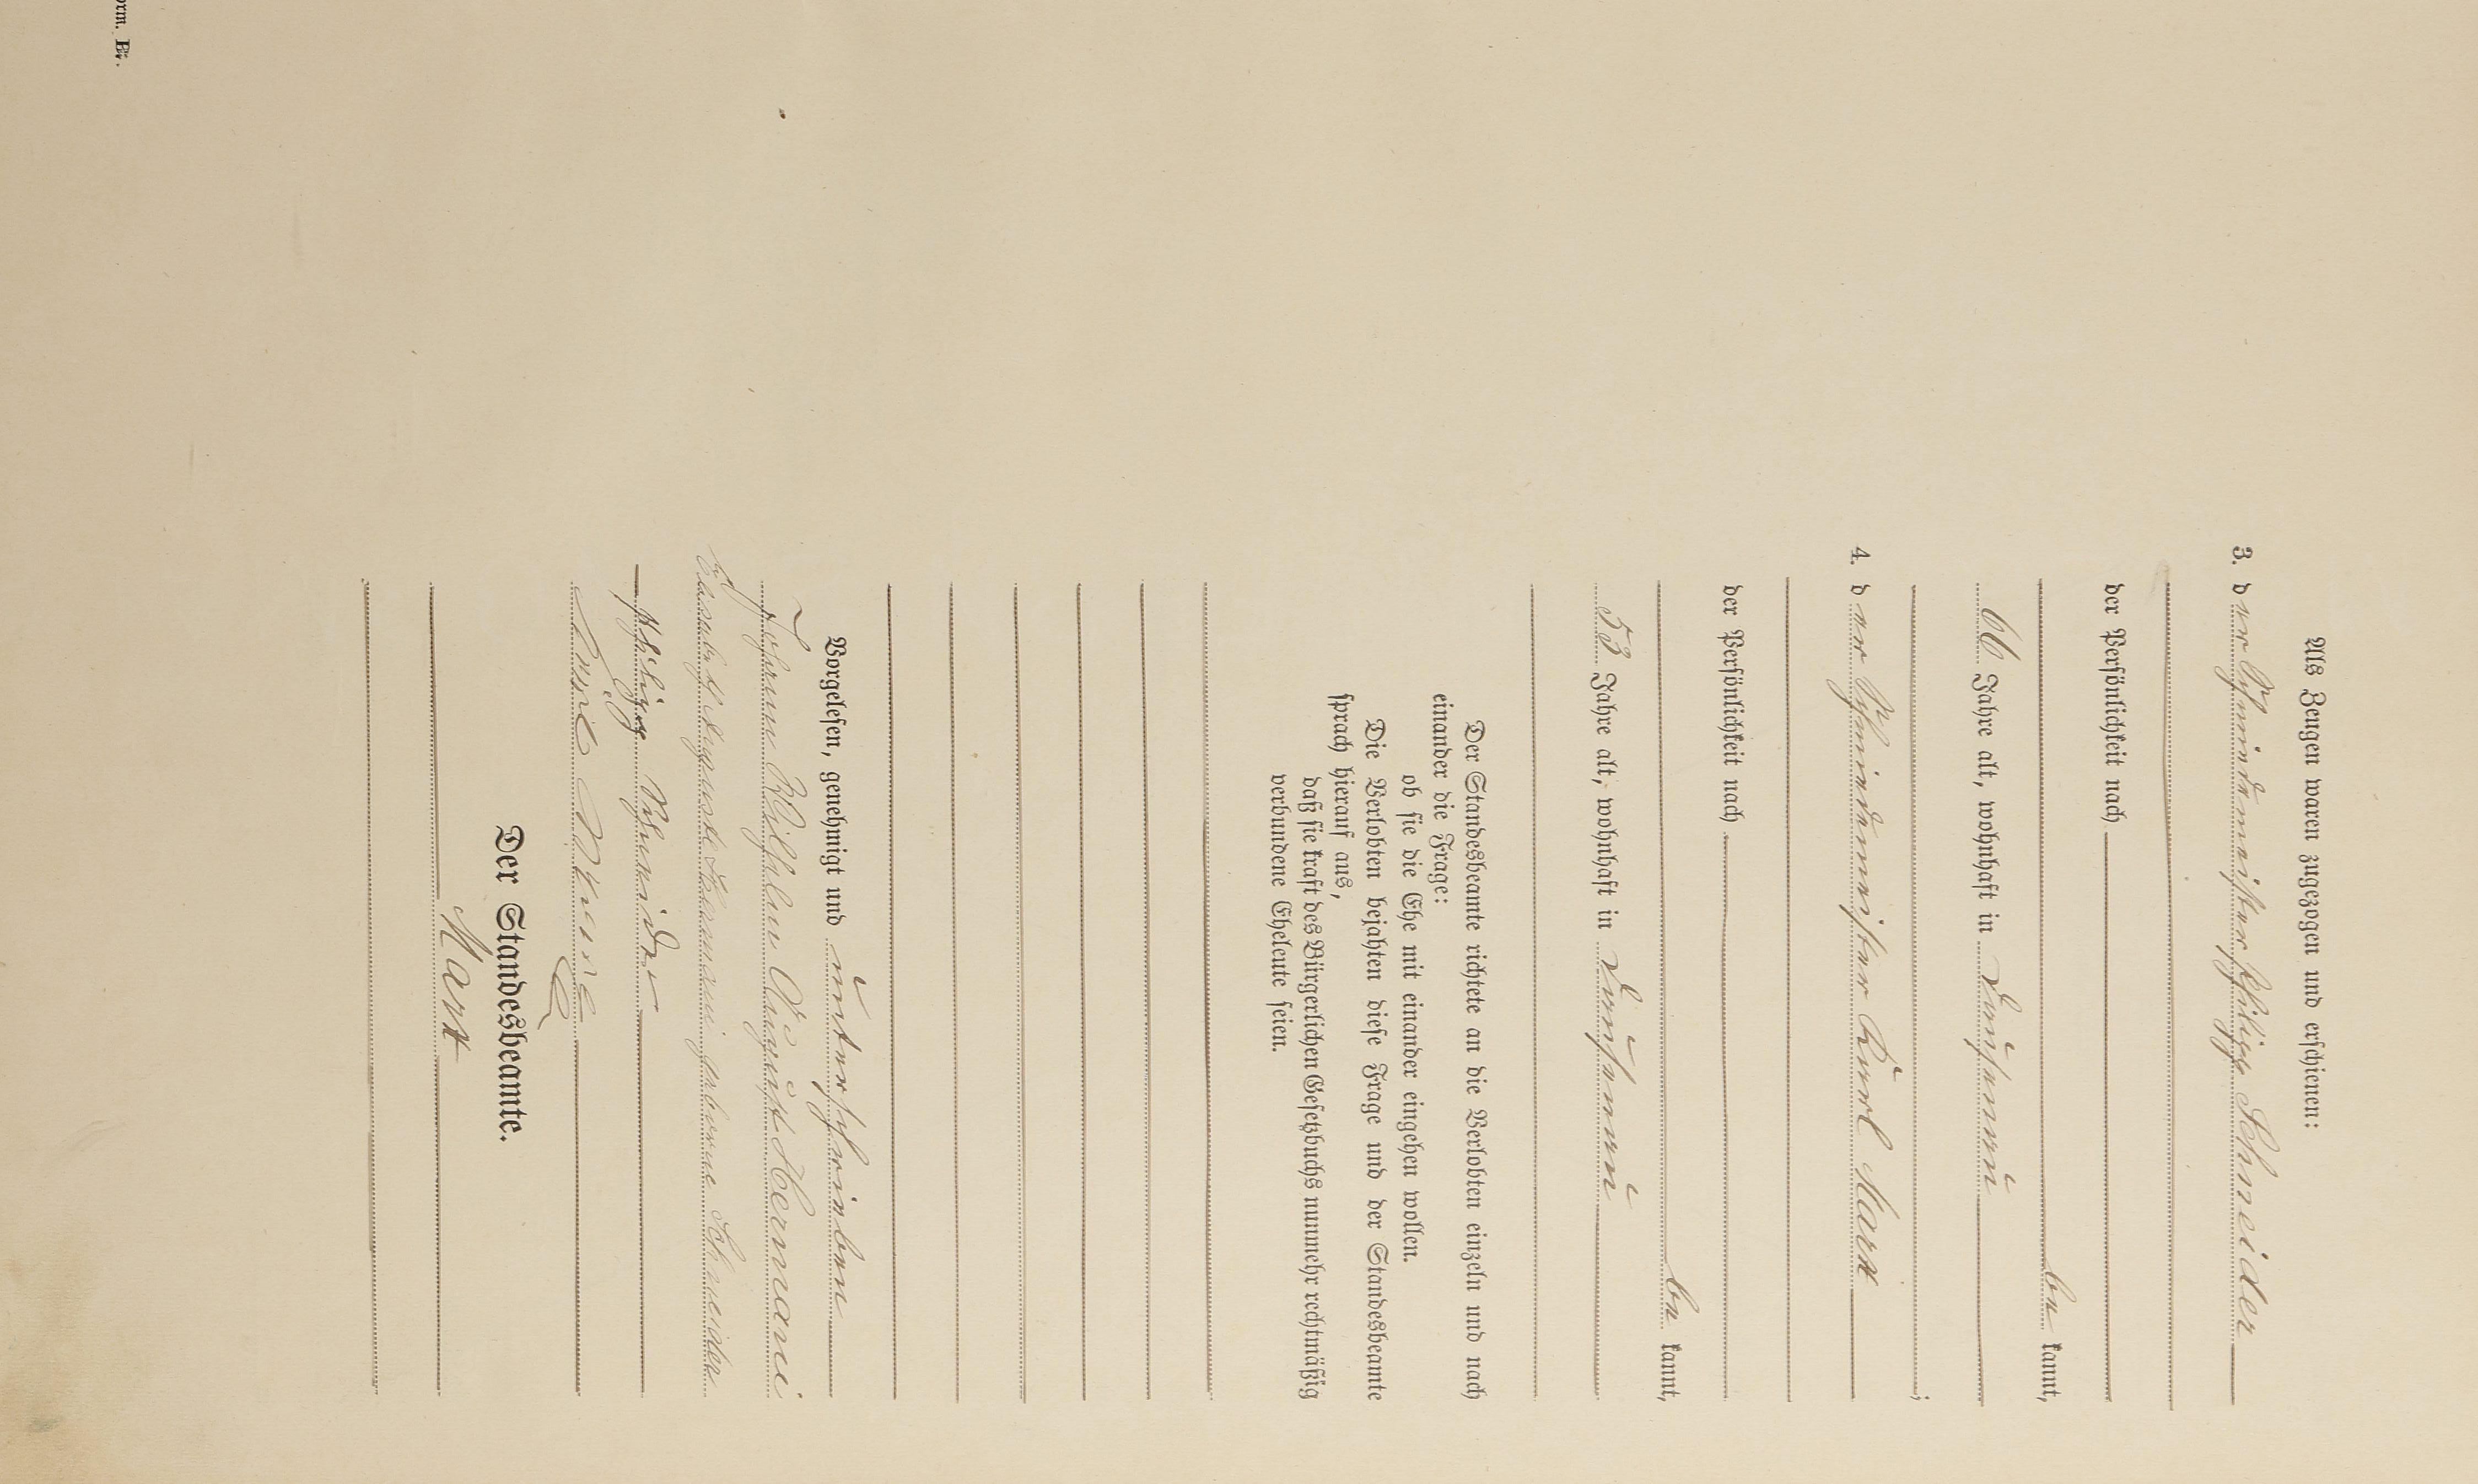 Als Zeugen waren zugezogen und erschienen:
3. der Schneidermeister Philipp Schneider
der Persönlichkeit nach
be kannt,
66 Jahre alt, wohnhaft in
;
4. der Schneidermeister Karl Marx
der Persönlichkeit nach
be kannt,
53 Jahre alt, wohnhaft in
Der Standesbeamte richtete an die Verlobten einzeln und nach
einander die Frage:
ob sie die Ehe mit einander eingehen wollen.
Die Verlobten bejahten diese Frage und der Standesbeamte
sprach hierauf aus,
daß sie kraft des Bürgerlichen Gesetzbuchs nunmehr rechtmäßig
verbundene Eheleute seien.
Vorgelesen, genehmigt und unterschrieben
Johann Wilhelm August Hermani
Elisabeth Auguste Hermani geborene Schneider
Philipp Schneider
Der Standesbeamte.
Marx
Form. Bc.